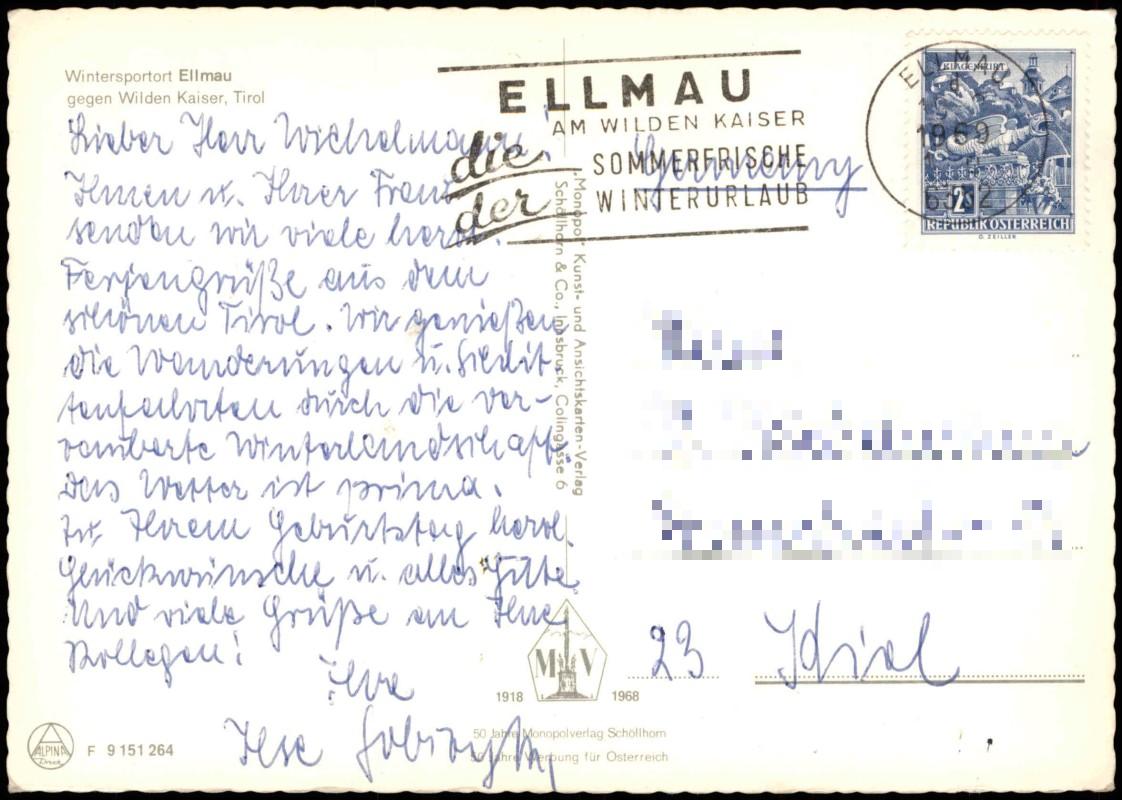 Wintersportort Ellmau
gegen Wilden Kaiser, Tirol
Lieber Herr Wichelmann!
Ihnen u. Ihrer Frau
senden wir viele herzl.
Feriengrüße aus dem
schönen Tirol. Wir genießen
die Wanderungen u. Schlit-
tenfahrten durch die ver-
zauberte Winterlandschaft.
Das Wetter ist prima.
Zu Ihrem Geburtstag herzl.
Glückwünsche u. alles Gute.
Und viele Grüße an Ihre
Kollegen!
Ihre
Ilse
ELLMAU
AM WILDEN KAISER
die SOMMERFRISCHE
der WINTERURLAUB
Germany
ELLMAU
1969
KLAGENFURT
2S
REPUBLIK ÖSTERREICH
O. ZEILLER
„Monopol" Kunst- und Ansichtskarten-Verlag
Schöllhorn & Co., Innsbruck, Colingasse 6
23 Kiel
M V
1918 1968
50 Jahre Monopolverlag Schöllhorn
50 Jahre Werbung für Österreich
ALPINA
Druck
F 9 151 264